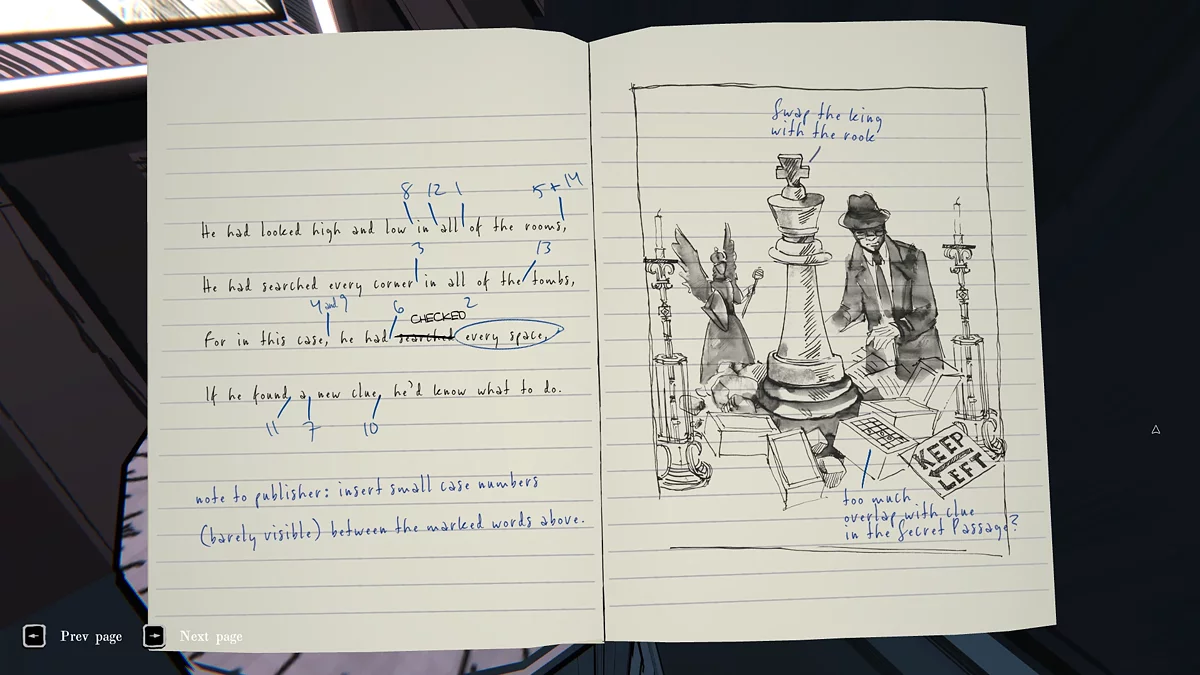 8 12 1 5 + 14
He had looked high and low in all of the rooms,
3 13
He had searched every corner in all of the tombs,
4 and 9 6 CHECKED 2
For in this case, he had searched every space,
If he found a new clue, he'd know what to do.
11 7 10
note to publisher: insert small case numbers
(barely visible) between the marked words above.
Swap the king
with the rook
KEEP
LEFT
too much
overlap with clue
in the Secret Passage?
Prev page
Next page